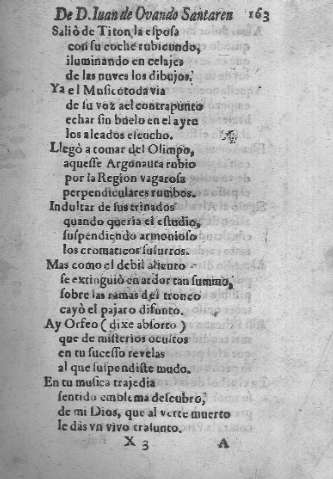 De D. Iuan de Ovando Santaren 163
Saliò de Titon la esposa
con su coche rubicundo,
iluminando en celajes
de las nuves los dibujos.
Ya el Musico toda via
de su voz ael contrapunto
echar sin buelo en el ayre
los aleados escucho.
Llegò a tomar del Olimpo,
aquesse Argonauta rubio
por la Region vagarosa
perpendiculares rumbos.
Indultar de sus trinados
quando queria el estudio,
suspendiendo armonioso
los cromaticos susurros.
Mas como el debil aliento
se extinguiò en ardor tan summo,
sobre las ramas del tronco
cayò el pajaro difunto.
Ay Orfeo (dixe absorto)
que de misterios ocultos
en tu sucesso revelas
al que suspendiste mudo.
En tu musica trajedia
sentido emblema descubro,
de mi Dios, que al verte muerto
le dàs vn vivo trasunto.
X 3 A